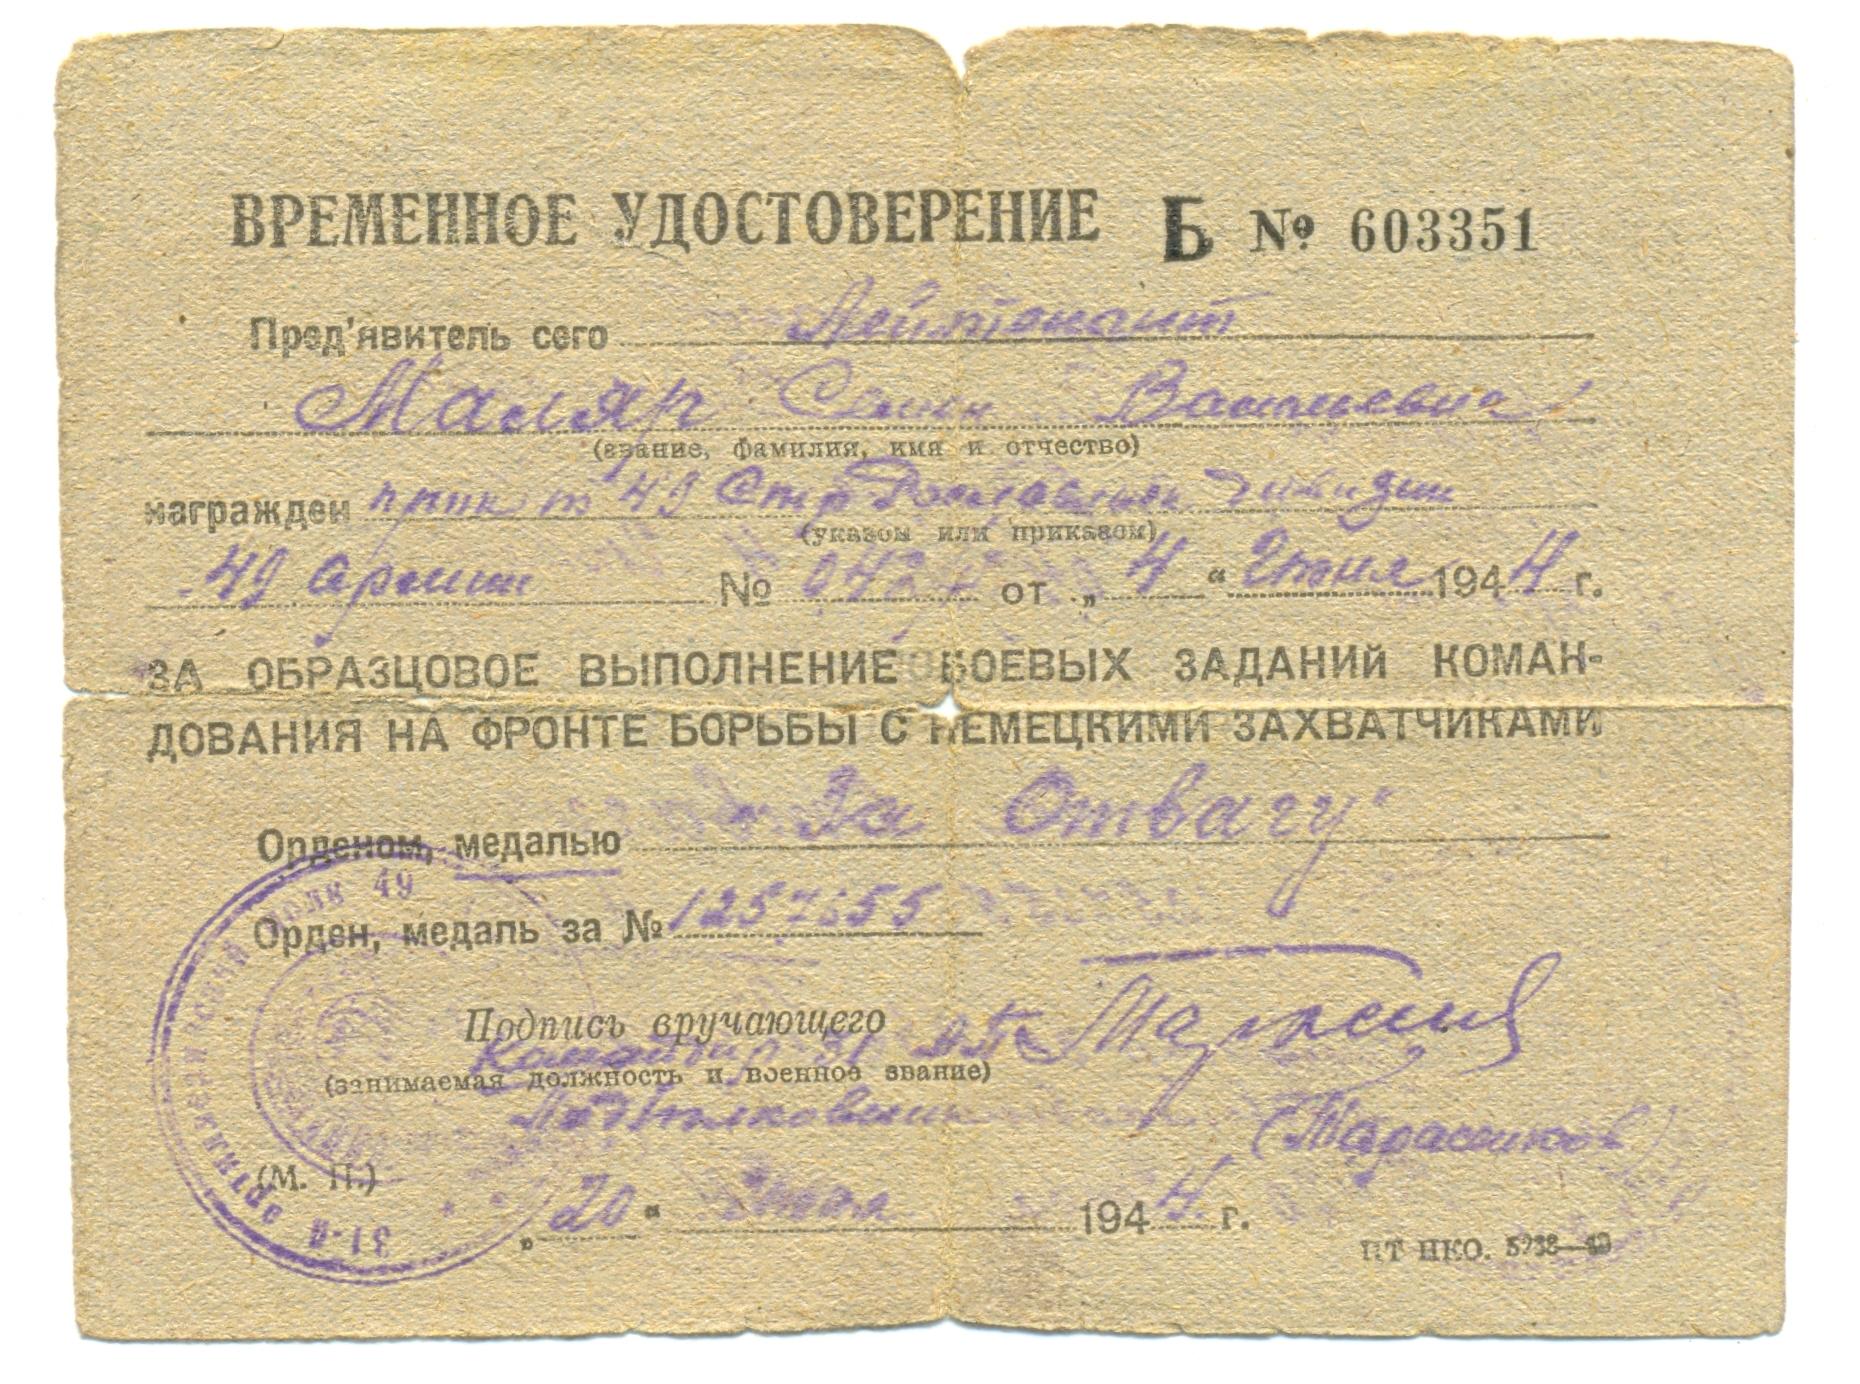 ВРЕМЕННОЕ УДОСТОВЕРЕНИЕ Б № 603351
Пред'явитель сего Лейтенант
Маляр Семен Васильевич
(звание, фамилия, имя и отчество)
награжден прик 49 Стр Рославльск дивизии
(указом или приказом)
49 армии № от „4“ Июня 1944 г.
ЗА ОБРАЗЦОВОЕ ВЫПОЛНЕНИЕ БОЕВЫХ ЗАДАНИЙ КОМАН-
ДОВАНИЯ НА ФРОНТЕ БОРЬБЫ С НЕМЕЦКИМИ ЗАХВАТЧИКАМИ
Орденом, медалью „За Отвагу"
Орден, медаль за № 1257655
Подпись вручающего
Командир 31 ап
(занимаемая должность и военное звание)
Подполковник (Тарасиков)
(М. П.)
„20“ Июня 1944 г.
ПТ НКО. 5938—42
31-й артиллерийский полк 49